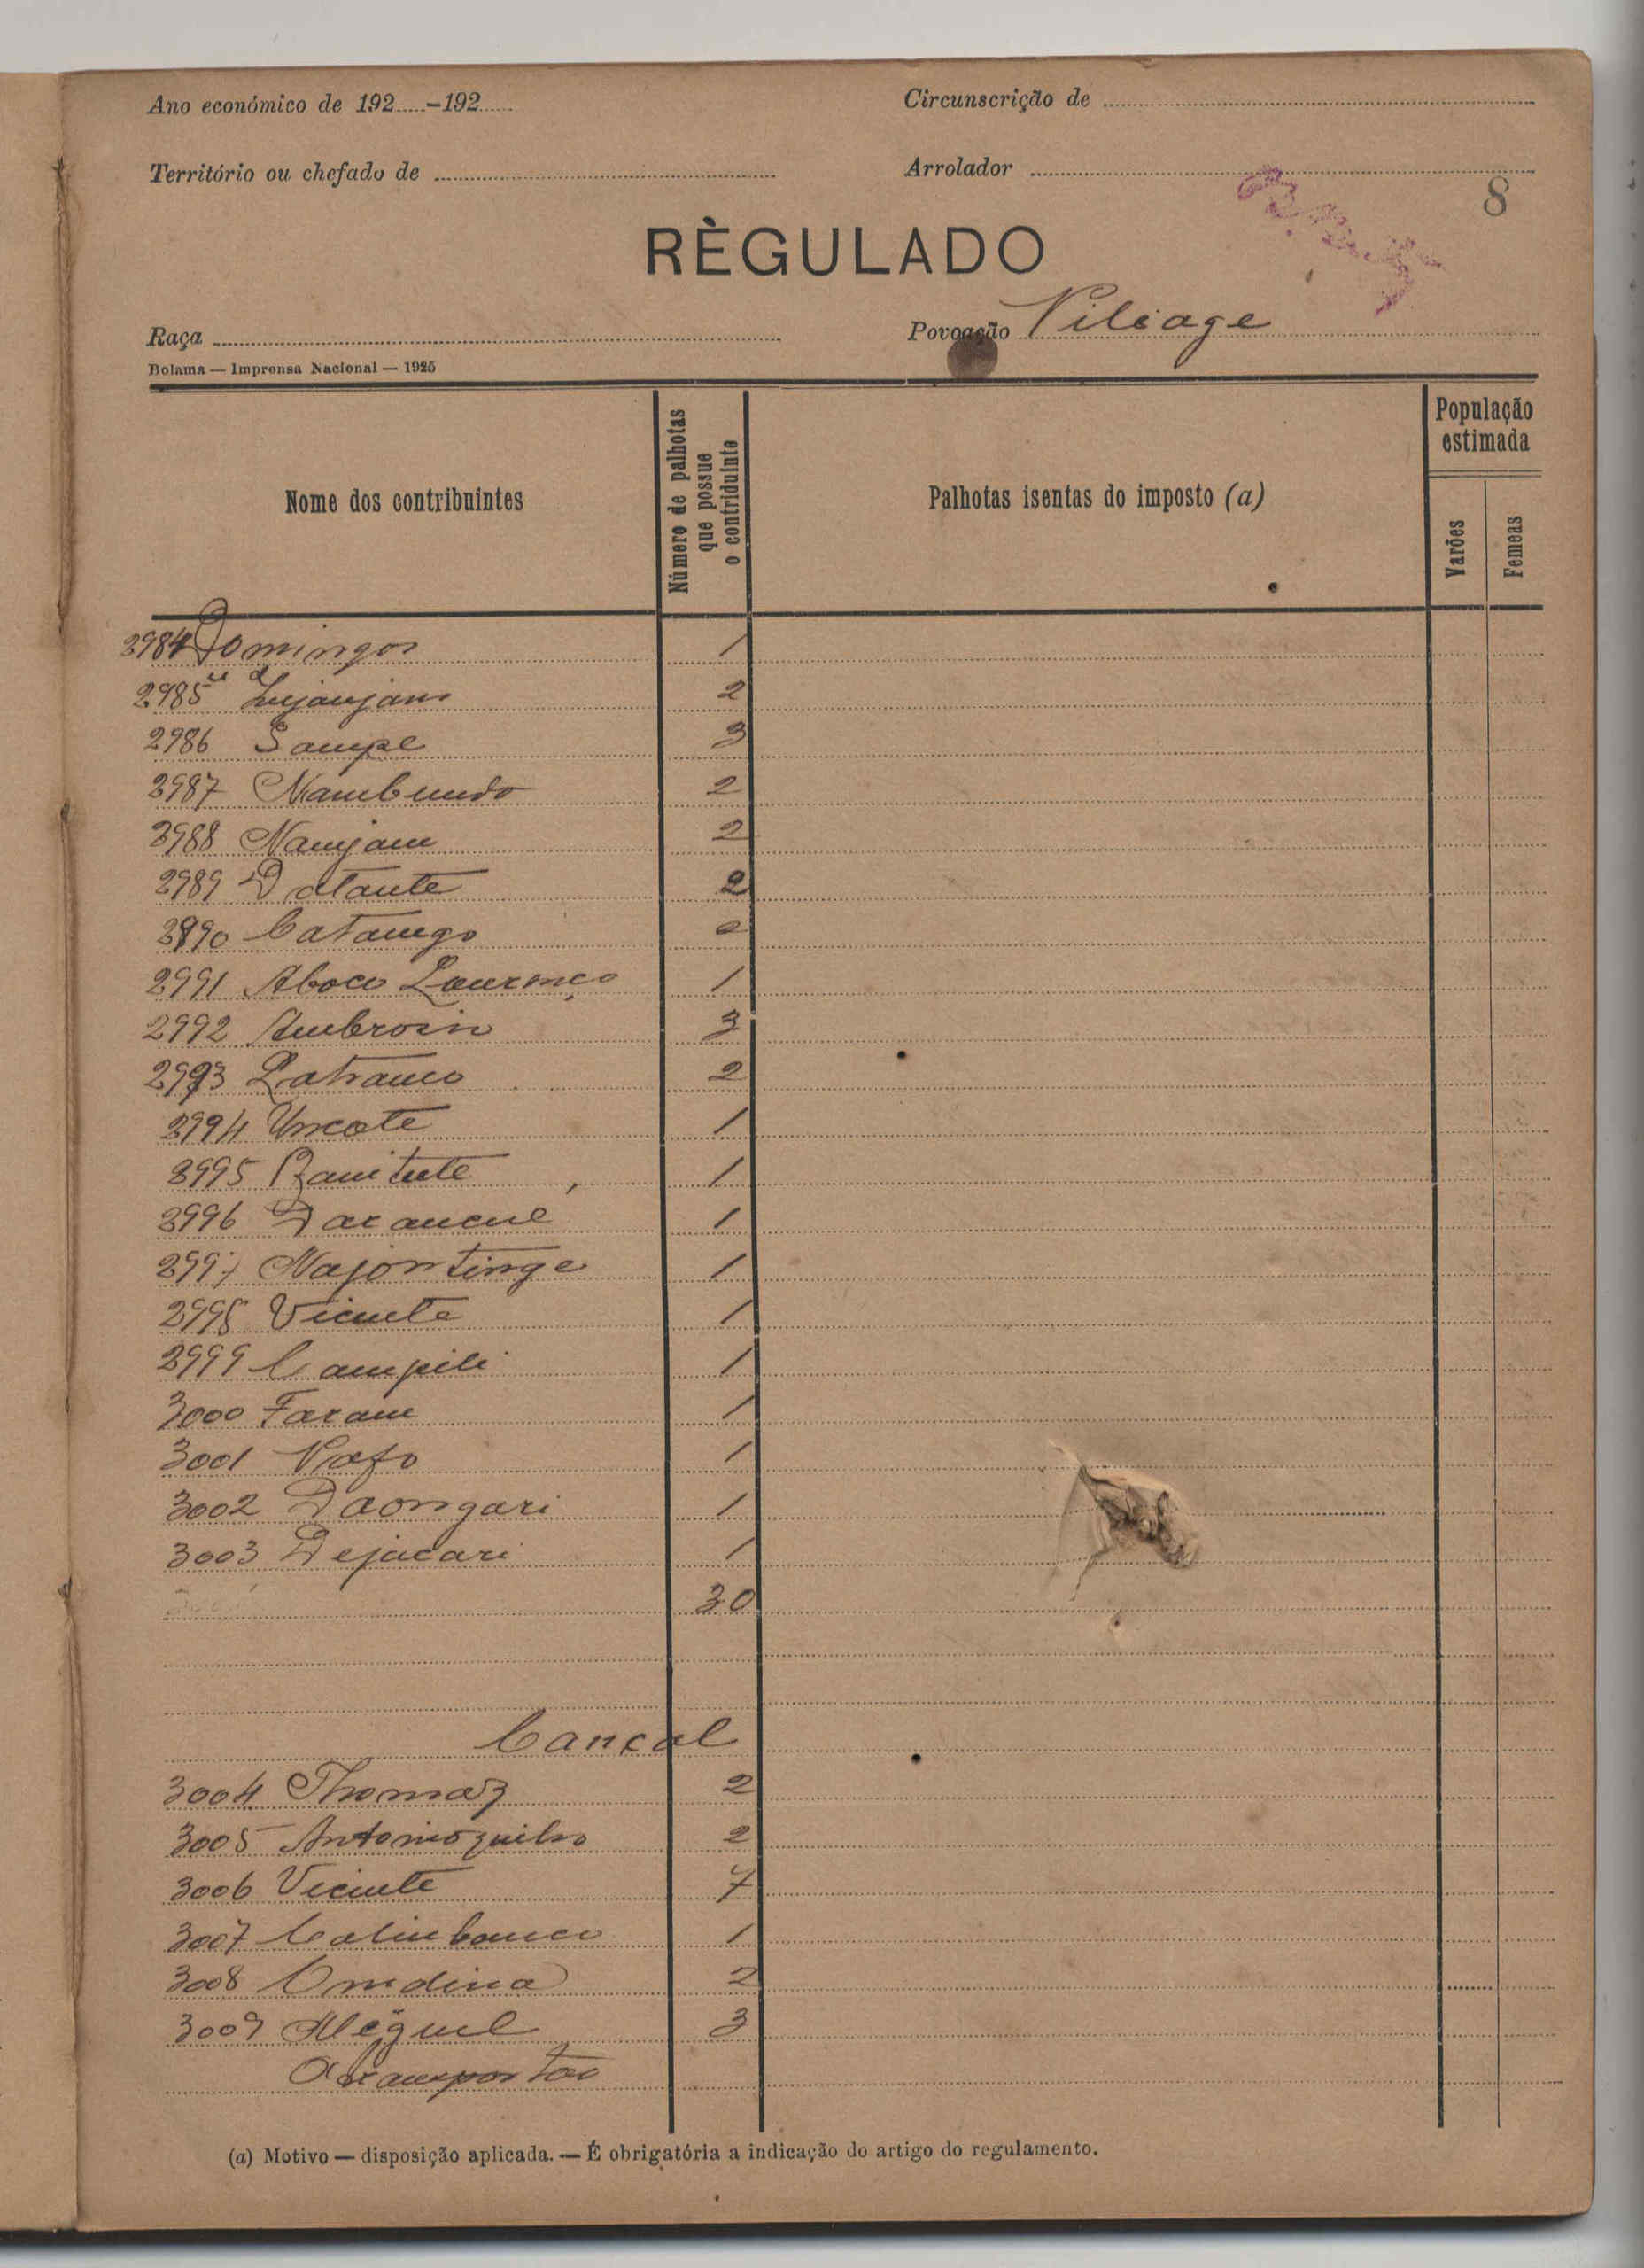 Ano económico de 192.....-192.....
Circunscrição de
Território ou chefado de
Arrolador
8
RÈGULADO
Raça
Povoação Viliage
Bolama — Imprensa Nacional — 1925
Nome dos contribuintes
Número de palhotas que possue o contriduinte
Palhotas isentas do imposto (a)
População estimada
Varões
Femeas
2984 Domingos 1
2985 2
2986 Sampe 3
2987 Nambundo 2
2988 Namjam 2
2989 Datante 2
2990 Catamgo 2
2991 Aboco Lourenço 1
2992 Ambrosin 3
2993 2
2994 Uncate 1
2995 Banitute 1
2996 Darancul 1
2997 Najontinge 1
2998 Vicente 1
2999 Campili 1
3000 Faram 1
3001 Nafo 1
3002 Daongari 1
3003 Dejacari 1
30
Cancal
3004 Thomaz 2
3005 2
3006 Vicente 7
3007 1
3008 Ondina 2
3009 Miguel 3
(a) Motivo — disposição aplicada. — É obrigatória a indicação do artigo do regulamento.